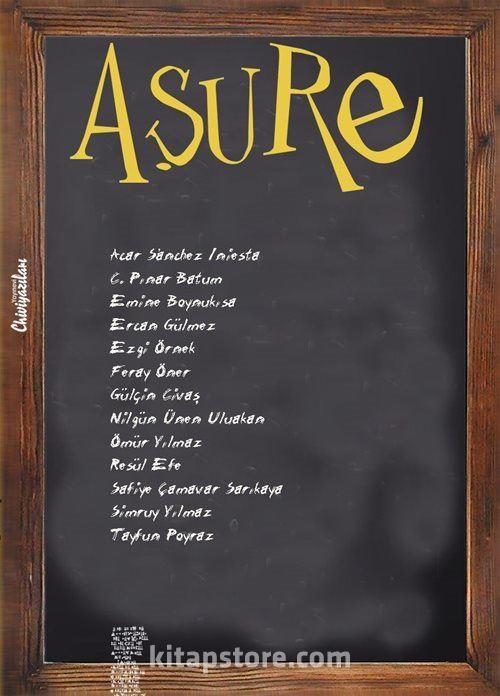 AŞURE
Acar Sànchez Iniesta
C. Pınar Batum
Emine Boynukısa
Ercan Gülmez
Ezgi Örnek
Feray Ömer
Gülçin Civaş
Nilgün Ünen Uluakan
Ömür Yılmaz
Resül Efe
Safiye Çamavar Sarıkaya
Simruy Yılmaz
Tayfun Poyraz
Chiviyazıları
kitapstore.com